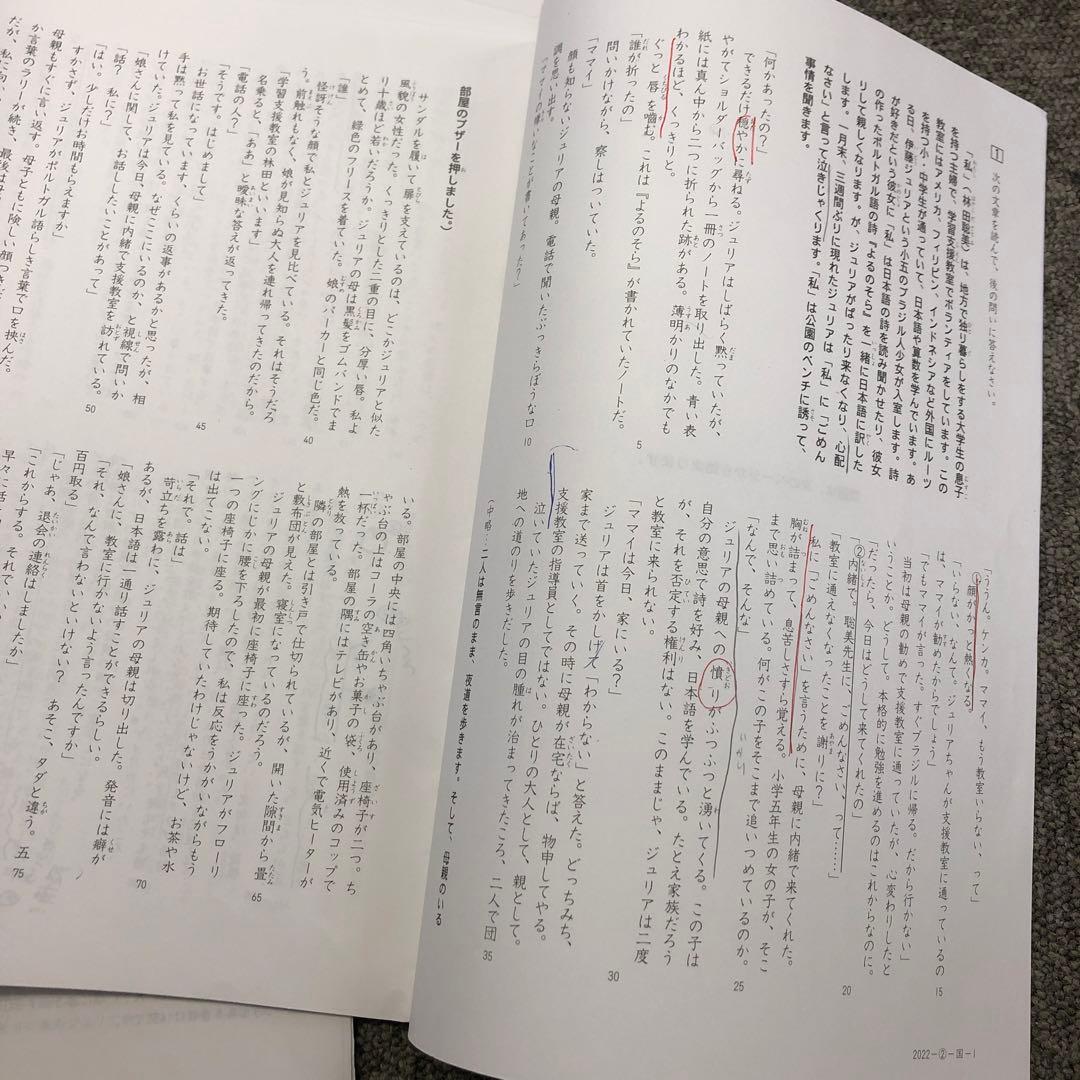 1 次の文章を読んで、後の問いに答えなさい。
「私」（林田聡美）は、地方で独り暮らしをする大学生の息子
を持つ主婦で、学習支援教室でボランティアをしています。この
教室にはアメリカ、フィリピン、インドネシアなど外国にルーツ
を持つ小・中学生が通っていて、日本語や算数を学んでいます。あ
る日、伊藤ジュリアという小五のブラジル人少女が入室します。詩
が好きだという彼女に「私」は日本語の詩を読み聞かせたり、彼女
の作ったポルトガル語の詩『よるのそら』を一緒に日本語に訳した
りして親しくなります。が、ジュリアがぱったり来なくなり、心配
します。一月末、三週間ぶりに現れたジュリアは「私」に「ごめん
なさい」と言って泣きじゃくります。「私」は公園のベンチに誘って、
事情を聞きます。
「何かあったの？」
できるだけ穏やかに尋ねる。ジュリアはしばらく黙っていたが、
やがてショルダーバッグから一冊のノートを取り出した。青い表
紙には真ん中から二つに折られた跡がある。薄明かりのなかでも
わかるほど、くっきりと。
ぐっと唇を嚙む。これは『よるのそら』が書かれていたノートだ。
「誰が折ったの」
問いかけながら、察しはついていた。
「ママイ」
顔も知らないジュリアの母親。電話で聞いたぶっきらぼうな口
調を思い出す。
「ママイの嫌いなことが書いてあった？」
「ううん。ケンカ。ママイ、もう教室いらない、って」
①顔がかっと熱くなる。
「いらない、なんて。ジュリアちゃんが支援教室に通っているの
は、ママイが勧めたからでしょう」
「でもママイが言った。すぐブラジルに帰る。だから行かない」
当初は母親の勧めで支援教室に通っていたが、心変わりしたと
いうことか。どうして。本格的に勉強を進めるのはこれからなのに。
「だったら、今日はどうして来てくれたの」
「②内緒で。聡美先生に、ごめんなさい、って……」
「教室に通えなくなったことを謝りに？」
私に「ごめんなさい」を言うために、母親に内緒で来てくれた。
胸が詰まって、息苦しさすら覚える。小学五年生の女の子が、そこ
まで思い詰めている。何がこの子をそこまで追いつめているのか。
「なんで、そんな」
ジュリアの母親への憤りがふつふつと湧いてくる。この子は
自分の意思で詩を好み、日本語を学んでいる。たとえ家族だろう
が、それを否定する権利はない。このままじゃ、ジュリアは二度
と教室に来られない。
「ママイは今日、家にいる？」
ジュリアは首をかしげ「わからない」と答えた。どっちみち、
家まで送っていく。その時に母親が在宅ならば、物申してやる。
支援教室の指導員としてではない。ひとりの大人として、親として。
泣いていたジュリアの目の腫れが治まってきたころ、二人で団
地への道のりを歩きだした。
（中略…二人は無言のまま、夜道を歩きます。そして、母親のいる
5
10
15
20
25
30
35
2022−②−国−1
部屋のブザーを押しました。）
サンダルを履いて扉を支えているのは、どこかジュリアと似た
風貌の女性だった。くっきりとした二重の目に、分厚い唇。私よ
り十歳ほど若いだろうか。ジュリアの母は黒髪をゴムバンドでま
とめて、緑色のフリースを着ていた。娘のパーカーと同じ色だ。
「誰」
怪訝そうな顔で私とジュリアを見比べている。それはそうだろ
う。前触れもなく、娘が見知らぬ大人を連れ帰ってきたのだから。
「学習支援教室の林田といいます」
名乗ると、「ああ」と曖昧な答えが返ってきた。
「電話の人？」
「そうです。はじめまして」
お世話になっています、くらいの返事があるかと思ったが、相
手は黙って私を見ている。なぜここにいるのか、と視線で問いか
けていた。ジュリアは今日、母親に内緒で支援教室を訪れている。
「娘さんに関して、お話ししたいことがあって」
「話？　私に？」
「はい。少しだけお時間もらえますか」
すかさず、ジュリアがポルトガル語らしき言葉で口を挟んだ。
母親もすぐに言い返す。母子ともに険しい顔つきだ
か言葉のラリーが続き、最後は母
だが、私に向い
40
45
50
いる。部屋の中央には四角いちゃぶ台があり、座椅子が二つ。ち
ゃぶ台の上はコーラの空き缶やお菓子の袋、使用済みのコップで
一杯だった。部屋の隅にはテレビがあり、近くで電気ヒーターが
熱を放っている。
隣の部屋とは引き戸で仕切られているが、開いた隙間から畳
と敷布団が見えた。寝室になっているのだろう。
ジュリアの母親が最初に座椅子に座った。ジュリアがフローリ
ングにじかに腰を下ろしたので、私は反応をうかがいながらもう
一つの座椅子に座る。期待していたわけじゃないけど、お茶や水
は出てこない。
「それで。話は」
苛立ちを露わに、ジュリアの母親は切り出した。発音には癖が
あるが、日本語は一通り話すことができるらしい。
「娘さんに、教室に行かないよう言ったんですか」
「それ、なんで言わないといけない？　あそこ、タダと違う。五
百円取る」
「じゃあ、退会の連絡はしましたか」
「これからする。それでいい
早々に話
65
70
75